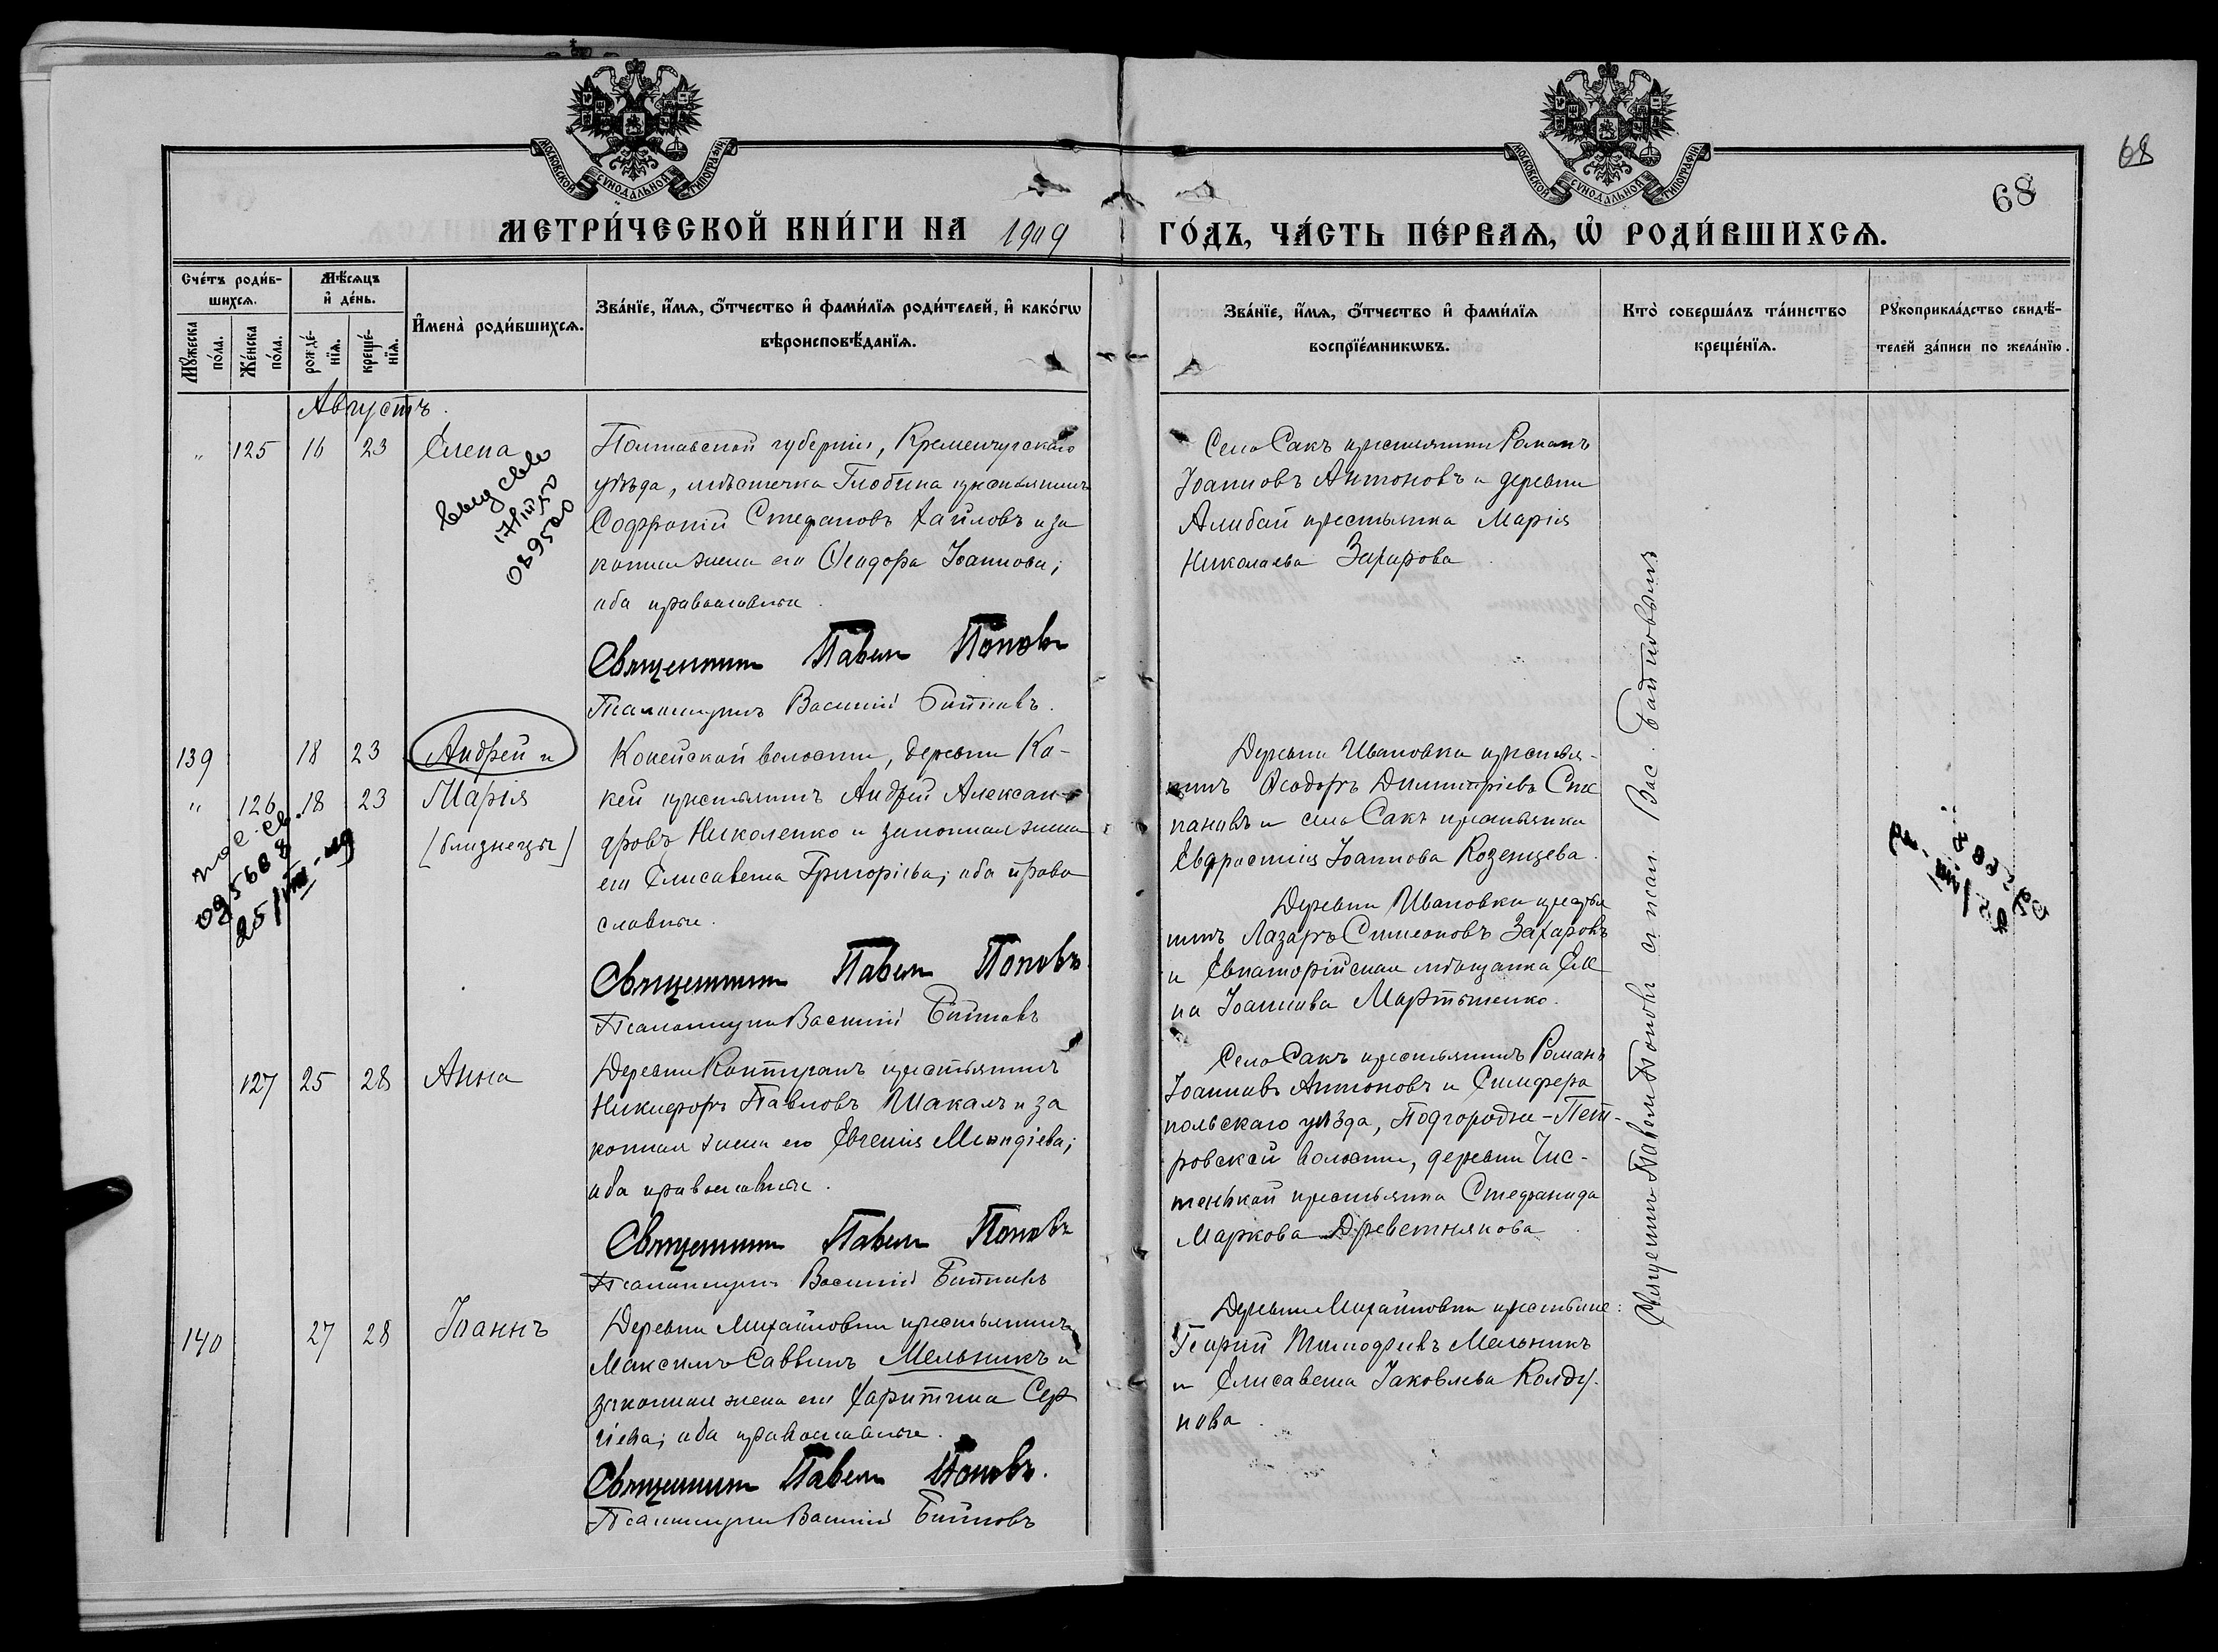 МОСКОВСКОЙ СѴНОДАЛЬНОЙ ТИПОГРАФІИ
МОСКОВСКОЙ СѴНОДАЛЬНОЙ ТИПОГРАФІИ
68
68
МЕТРИ́ЧЕСКОЙ КНИ́ГИ НА 1909
ГО́ДЪ, ЧА́СТЬ ПЕ́РВАѦ, Ѡ҆ РОДИ́ВШИХСѦ.
Сче́тъ роди́в-
шихсѧ.
Мѣ́сѧцъ
и҆ де́нь.
Мꙋ́жеска
по́ла.
Же́нска
по́ла.
рожде́-
нїѧ.
креще́-
нїѧ.
И҆мена̀ роди́вшихсѧ.
Зва́нїе, и҆́мѧ, ѻ҆́тчество и҆ фами́лїѧ роди́телей, и҆ како́гѡ
вѣроисповѣ́данїѧ.
Зва́нїе, и҆́мѧ, ѻ҆́тчество и҆ фами́лїѧ
воспрїе́мникѡвъ.
Кто̀ соверша́лъ та́инство
креще́нїѧ.
Рꙋкоприкла́дство свидѣ́-
телей за́писи по жела́нїю.
Августъ.
" 125 16 23 Елена
Полтавской губерніи, Кременчугскаго
уѣзда, мѣстечка Глобина крестьянинъ
Софроній Стефановъ Хайловъ и за
конная жена его Ѳеодора Іоаннова;
оба православные.
Священникъ Павелъ Поповъ
Псаломщикъ Василій
Село Сакъ крестьянинъ Романъ
Іоанновъ Антоновъ и деревни
Алибай крестьянка Марія
Николаева Захарова.
выд св-во
17/III 50
089520
139 18 23 Андрей и
" 126 18 23 Марія
[близнецы]
Конейской волости, деревни Ко-
ней крестьянинъ Андрей Алексан-
дровъ Николенко и законная жена
его Елисавета Григорьева; оба право
славные.
Священникъ Павелъ Поповъ
Псаломщикъ Василій
Деревни Ивановки крестья-
нинъ Ѳеодоръ Димитріевъ Сте
пановъ и село Сакъ крестьянка
Евфросинія Іоаннова Козенцева.
Деревни Ивановки крестья
нинъ Лазарь Симеоновъ Захаровъ
и Евпаторійская мѣщанка Еле
на Іоаннова Мартыненко.
095608
25/VIII-
127 25 28 Анна
Деревни Контуганъ крестьянинъ
Никифоръ Павловъ Шакалъ и за
конная жена его Евгенія
оба православные.
Священникъ Павелъ Поповъ
Псаломщикъ Василій
Село Сакъ крестьянинъ Романъ
Іоанновъ Антоновъ и Симферо
польскаго уѣзда, Подгородне-Пет-
ровской волости, деревни Чис-
тенькой крестьянка Стефанида
Маркова Древетнякова
140 27 28 Іоаннъ
Деревни Михайловки крестьянинъ
Максимъ Саввинъ Мельникъ и
законная жена его Харитина Сер
гіева; оба православные.
Священникъ Павелъ Поповъ.
Псаломщикъ Василій
Деревни Михайловки крестьяне:
Георгій Тимофеевъ Мельникъ
и Елисавета Іаковлева Колду-
нова.
Священникъ Павелъ Поповъ съ псал. Вас.